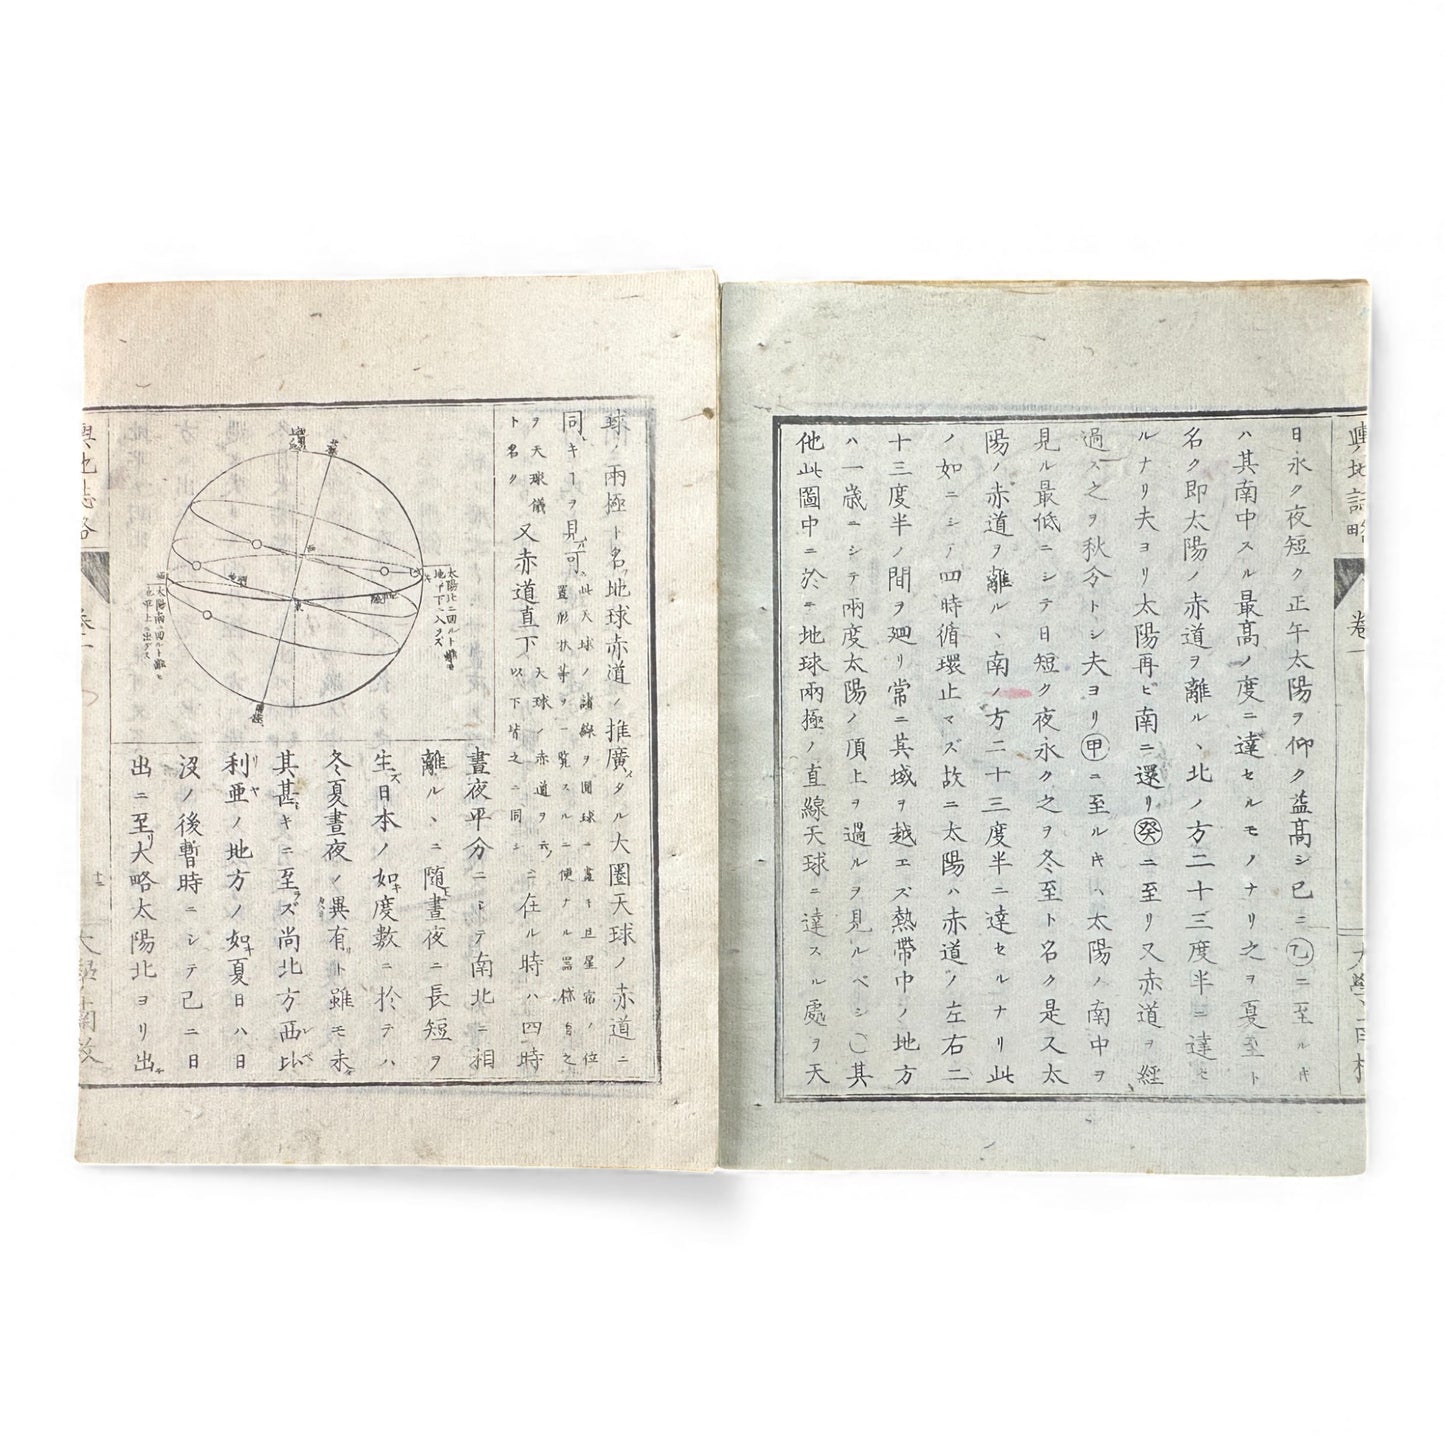 輿地誌略
卷一
日永ク夜短ク正午太陽ヲ仰ク益髙シ已ニ乙ニ至ルキ
ハ其南中スル最髙ノ度ニ達セルモノナリ之ヲ夏至ト
名ク即太陽ノ赤道ヲ離ル丶北ノ方二十三度半ニ達セ
ルナリ夫ヨリ太陽再ビ南ニ還リ癸ニ至リ又赤道ヲ經
過ス之ヲ秋分トシ夫ヨリ甲ニ至ルキハ太陽ノ南中ヲ
見ル最低ニシテ日短ク夜永ク之ヲ冬至ト名ク是又太
陽ノ赤道ヲ離ル丶南ノ方二十三度半ニ達セルナリ此
ノ如ニシテ四時循環止マズ故ニ太陽ハ赤道ノ左右二
十三度半ノ間ヲ廻リ常ニ其域ヲ越エズ熱帶中ノ地方
ハ一歳ニシテ兩度太陽ノ頂上ヲ過ルヲ見ルベシ〇其
他此圖中ニ於テ地球兩極ノ直線天球ニ達スル處ヲ天
球ノ兩極ト名ヅ地球赤道ノ推廣メタル大圈天球ノ赤道ニ
同キヿヲ見可シ
此天球ノ諸線ヲ圓球ニ畫キ且星宿ノ位
置形狀等ヲ一覧スルニ便ナル器械有之
ヲ天球儀
ト名ク
又赤道直下
天球ノ赤道ヲ云
以下皆之ニ同シ
ニ在ル時ハ四時
晝夜平分ニシテ南北ニ相
離ル丶ニ随ヒ晝夜ニ長短ヲ
生ズ日本ノ如キ度數ニ於テハ
冬夏晝夜ノ異有リト雖モ未ダ
其甚キニ至ラズ尚北方西比
利亜ノ地方ノ如キ夏日ハ日
沒ノ後暫時ニシテ已ニ日
出ニ至リ大略太陽北ヨリ出
太陽北ニ回ルト雖モ
地下ニ入ラズ
太陽南ニ回ルト雖モ
地平上ニ出デス
東
輿地誌略
卷一